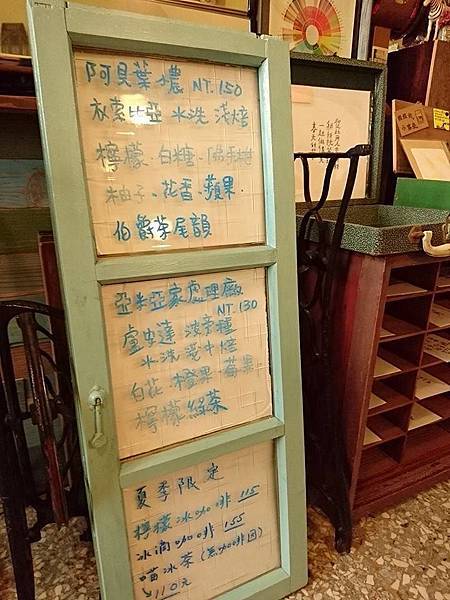 阿貝葉濃 NT.150
衣索比亞 水洗 淺焙
檸檬 白糖
柚子、花香 蘋果.
伯爵茶尾韻
亞米亞家處理廠
NT.130
盧安達 波旁種
水洗 淺中焙
白花 橙果 莓果
檸檬 綠茶
夏季限定
檸檬冰咖啡 115
冰滴咖啡 155
喵冰茶(無咖啡因)
110元